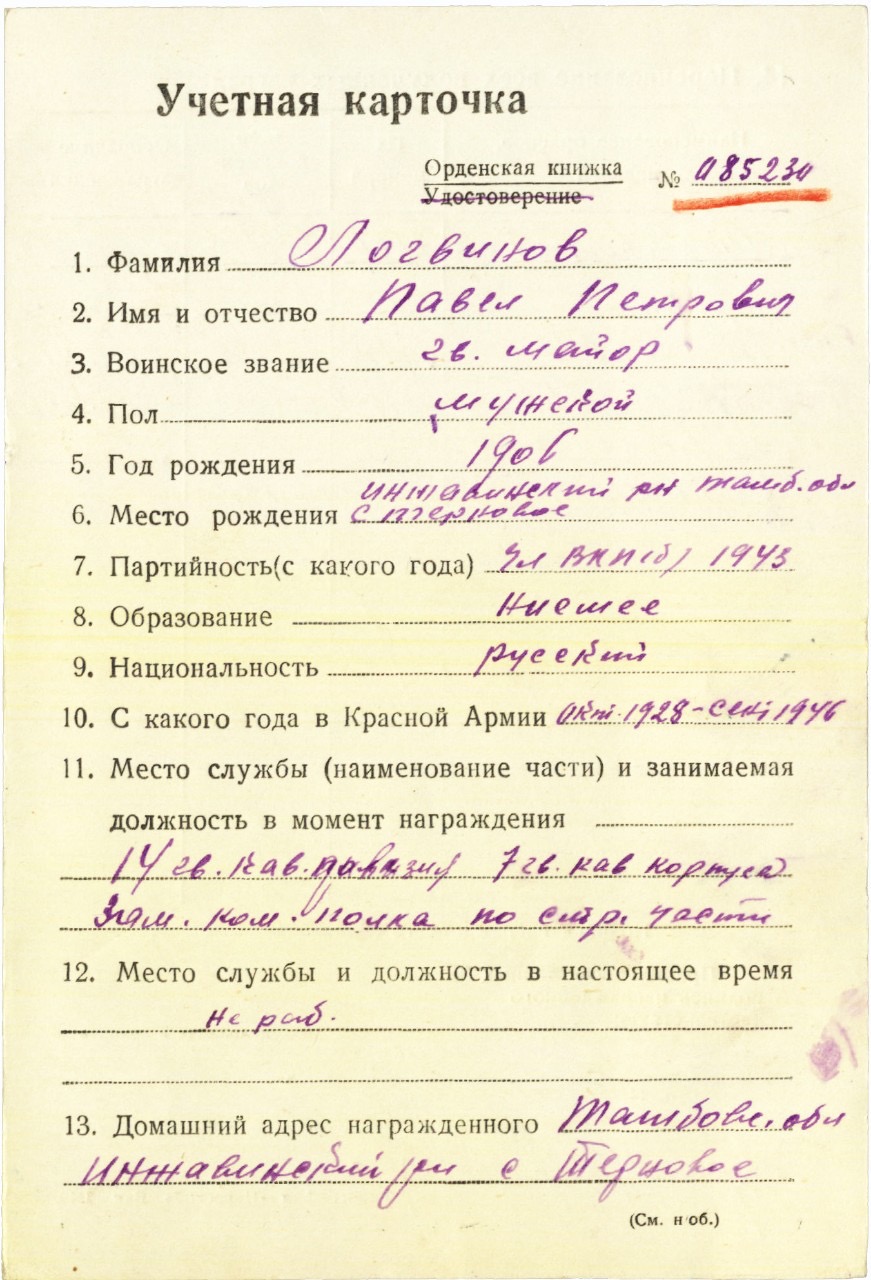 Учетная карточка
Орденская книжка
Удостоверение
№
1. Фамилия Логвинов
2. Имя и отчество Павел Петрович
3. Воинское звание гв. майор
4. Пол мужской
5. Год рождения 1906
Инжавинский рн тамб. обл
6. Место рождения с терновое
7. Партийность(с какого года) Чл ВКП(б) 1943
8. Образование Нисшее
9. Национальность русский
10. С какого года в Красной Армии Окт. 1928-Сент 1946
11. Место службы (наименование части) и занимаемая
должность в момент награждения
14 гв. кав. дивизия 7 гв. кав корпуса
Зам. ком. полка по стр. части
12. Место службы и должность в настоящее время
не раб.
13. Домашний адрес награжденного Тамбовс. обл
Инжавинский рн с Терновое
(См. н об.)